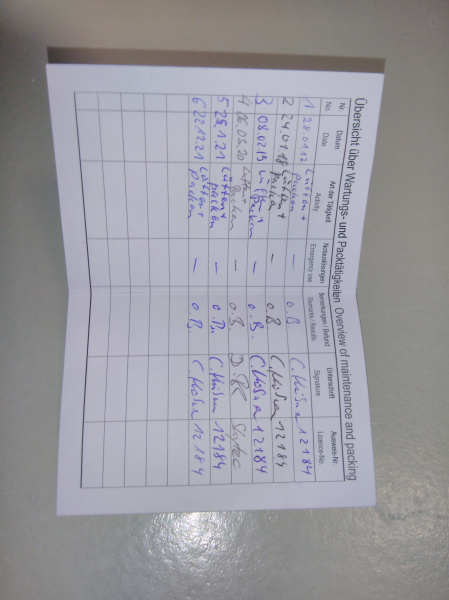 Übersicht über Wartungs- und Packtätigkeiten Overview of maintenance and packing
Nr. Datum Art der Tätigkeit Notauslösungen Bemerkungen / Befund Unterschrift Ausweis-Nr.
No. Date Activity Emergency use Remarks / Results Signature Licence-No.
1 28.01.17 Lüften + packen — o.B. 12184
2 24.01.18 Lüften + packen — o.B. 12184
3 08.02.19 Lüften + packen — o.B. 12184
4 06.05.20 Lüften + packen — o.B.
5 25.1.21 Lüften + packen — o.B. 12184
6 22.12.21 Lüften + packen — o.B. 12184